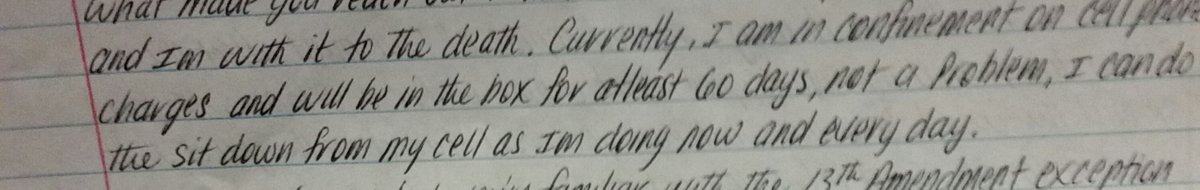 What made you reach
and Im with it to The death. Currently, I am in confinement on cell phone
charges and will be in the box for atleast 60 days, not a Problem, I can do
the sit down from my cell as Im doing now and every day.
familiar with The 13th Amendment exception